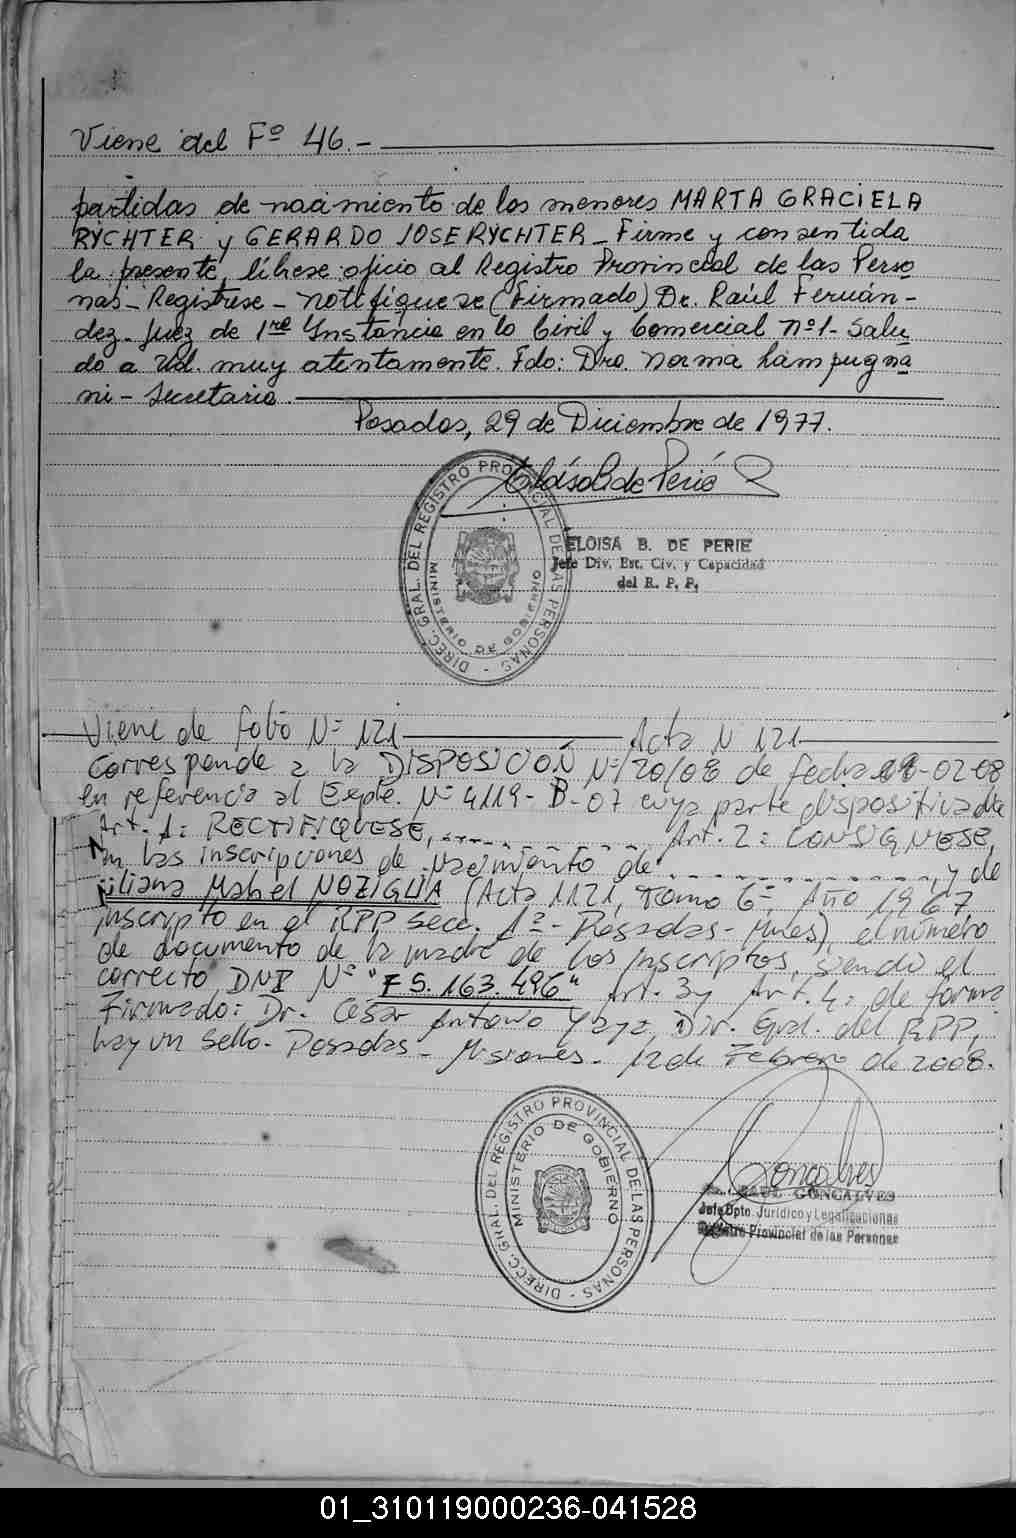 Viene del Fº 46.-
partidas de nacimiento de los menores MARTA GRACIELA
RYCHTER y GERARDO JOSE RYCHTER - Firme y consentida
la presente, líbrese oficio al Registro Provincial de las Perso
nas - Registrese - notifíquese (Firmado) Dr. Raúl Fernán-
dez - Juez de 1ra Instancia en lo Civil y Comercial nº1- Salu
do a Ud. muy atentamente. Fdo: Dra. Norma Lampugna
ni - Secretaria.
Posadas, 29 de Diciembre de 1977.
DIREC. GRAL. DEL REGISTRO PROVINCIAL DE LAS PERSONAS -
MINISTERIO DE GOBIERNO
ELOISA B. DE PERIE
Jefe Div. Est. Civ. y Capacidad
del R. P. P.
Viene de folio Nº 121 Acta N 121
Corresponde a la DISPOSICIÓN Nº 120/08 de fecha -02-08
en referencia al Expte. Nº 4119-B-07 cuya parte dispositiva dice
Art. 1: RECTIFIQUESE, ............ Art. 2: CONSIGNESE,
en las inscripciones de nacimiento de ............, y de
Liliana Mabel NOZIGLIA (Acta 1121, Tomo 6º, Año 1967,
inscripto en el RPP Secc. 1º - Posadas - Mnes), el número
de documento de la madre de los inscriptos, siendo el
correcto DNI Nº "F 5.163.496" Art. 3 y Art. 4: de forma
Firmado: Dr. Cesar Antonio Yaya, Dir. Gral. del RPP,
hay un sello. Posadas - Misiones - 12 de Febrero de 2008.
DIREC. GRAL. DEL REGISTRO PROVINCIAL DE LAS PERSONAS -
MINISTERIO DE GOBIERNO
Goncalves
RAUL GONCALVES
Jefe Dpto. Jurídico y Legalizaciones
Registro Provincial de las Personas
01_310119000236-041528